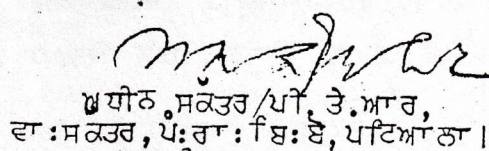 ਅਧੀਨ ਸਕੱਤਰ/ਪੀ. ਤੇ. ਆਰ,
ਵਾ:ਸਕਤਰ, ਪੰ:ਰਾ: ਬਿ:ਬੋ, ਪਟਿਆਲਾ।